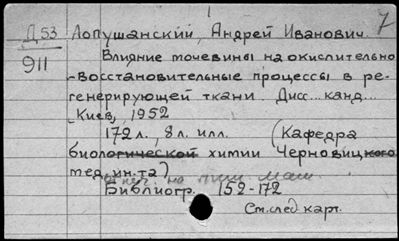 7
Д53 Лопушанский, Андрей Иванович.
911 Влияние мочевины на окислительно
-восстановительные процессы в ре-
генерирующей ткани. Дисс... канд...
Киев, 1952
172 л., 8 л. илл. (Кафедра
биологической химии Черновицкого
мед. ин-та)
на пиш. маш.
Библиогр. 152-172
См. след карт.